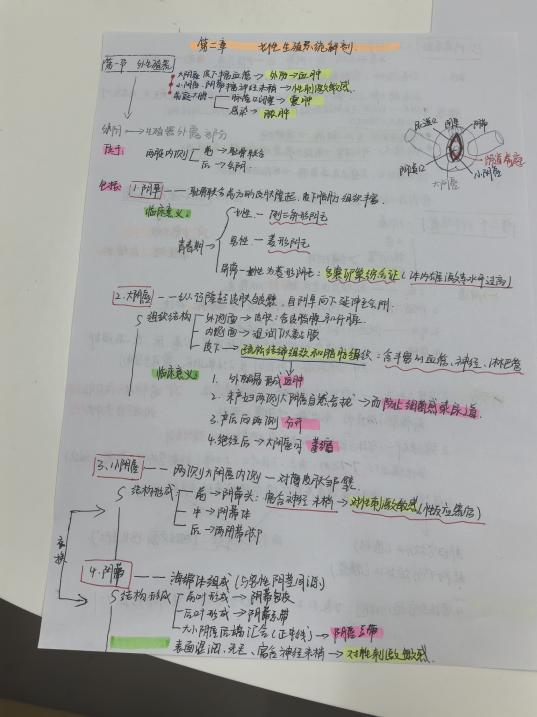 第二章 女性生殖系统解剖
第一节 外生殖器
大阴唇皮下擅血管→外伤→血肿
小阴唇、阴蒂擅神经末梢→性刺激敏感
前庭大腺
囊肿
感染→脓肿
外阴→生殖器外露部分
位于:
两股内侧
前→耻骨联合
后→会阴
尿道口 阴唇 阴蒂
阴道口
大阴唇
小阴唇
包括:
1.阴阜——耻骨联合前方的皮肤隆起,皮下脂肪组织丰富.
临床意义:
青春期
女性—倒三角形阴毛
男性—菱形阴毛
异常—女性为菱形阴毛:多囊卵巢综合征(体内雄激素水平过高)
2.大阴唇——纵行隆起皮肤皱襞,自阴阜向下延伸至会阴.
组织结构
外侧面→皮肤:含皮脂腺和汗腺.
内侧面→湿润似黏膜
皮下→疏松结缔组织和脂肪组织:含丰富的血管、神经、淋巴管
临床意义:
1. 外伤易形成血肿
2. 未产妇两侧大阴唇自然合拢→而防止细菌感染尿道.
3. 产后向两侧分开
4. 绝经后→大阴唇可萎缩
3.小阴唇——两侧大阴唇内侧一对薄皮肤皱襞.
结构形成
前→阴蒂头:富含神经末梢→对性刺激敏感(性反应器官)
中→阴蒂体
后→两阴蒂脚
4.阴蒂——海绵体组成(与男性阴茎同源)
结构形成
前叶形成→阴蒂包皮
后叶形成→阴蒂系带
大小阴唇后端汇合(正中线)→阴唇系带
表面湿润、无毛、富含神经末梢→对性刺激敏感.